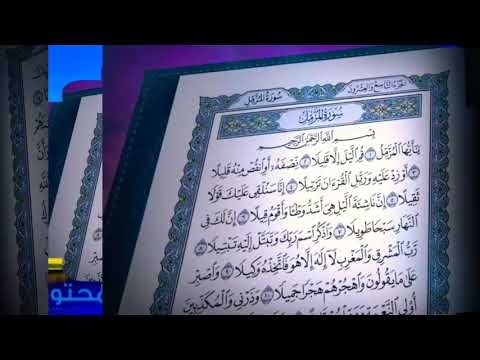 الجزء التاسع والعشرون
سورة المزمل
سورة المزمل
بِسۡمِ ٱللَّهِ ٱلرَّحۡمَٰنِ ٱلرَّحِيمِ
يَٰٓأَيُّهَا ٱلۡمُزَّمِّلُ ١ قُمِ ٱلَّيۡلَ إِلَّا قَلِيلٗا ٢ نِّصۡفَهُۥٓ أَوِ ٱنقُصۡ مِنۡهُ قَلِيلًا
٣ أَوۡ زِدۡ عَلَيۡهِ وَرَتِّلِ ٱلۡقُرۡءَانَ تَرۡتِيلًا ٤ إِنَّا سَنُلۡقِي عَلَيۡكَ قَوۡلٗا
ثَقِيلًا ٥ إِنَّ نَاشِئَةَ ٱلَّيۡلِ هِيَ أَشَدُّ وَطۡـٔٗا وَأَقۡوَمُ قِيلًا ٦ إِنَّ لَكَ فِي
ٱلنَّهَارِ سَبۡحٗا طَوِيلٗا ٧ وَٱذۡكُرِ ٱسۡمَ رَبِّكَ وَتَبَتَّلۡ إِلَيۡهِ تَبۡتِيلٗا ٨
رَّبُّ ٱلۡمَشۡرِقِ وَٱلۡمَغۡرِبِ لَآ إِلَٰهَ إِلَّا هُوَ فَٱتَّخِذۡهُ وَكِيلٗا ٩ وَٱصۡبِرۡ
عَلَىٰ مَا يَقُولُونَ وَٱهۡجُرۡهُمۡ هَجۡرٗا جَمِيلٗا ١٠ وَذَرۡنِي وَٱلۡمُكَذِّبِينَ
أُوْلِي ٱلنَّعۡمَةِ
محتو